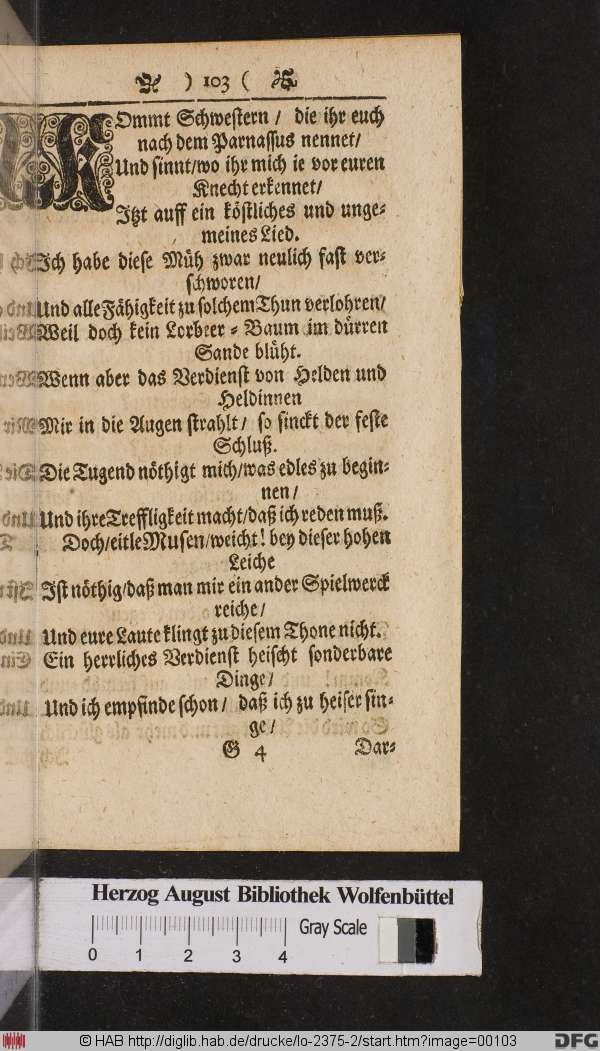 ) 103 (
KOmmt Schwestern / die ihr euch
nach dem Parnassus nennet/
Und sinnt/wo ihr mich ie vor euren
Knecht erkennet/
Itzt auff ein köstliches und unge⸗
meines Lied.
Ich habe diese Müh zwar neulich fast ver⸗
schworen/
Und alle Fähigkeit zu solchem Thun verlohren/
Weil doch kein Lorbeer⸗Baum im dürren
Sande blüht.
Wenn aber das Verdienst von Helden und
Heldinnen
Mir in die Augen strahlt/ so sinckt der feste
Schluß.
Die Tugend nöthigt mich/was edles zu begin⸗
nen/
Und ihre Treffligkeit macht/daß ich reden muß.
Doch/eitle Musen/weicht! bey dieser hohen
Leiche
Ist nöthig/daß man mir ein ander Spielwerck
reiche/
Und eure Laute klingt zu diesem Thone nicht.
Ein herrliches Verdienst heischt sonderbare
Dinge/
Und ich empfinde schon/ daß ich zu heiser sin⸗
ge/
G 4 Dar⸗
Herzog August Bibliothek Wolfenbüttel
Gray Scale
0 1 2 3 4
© HAB http://diglib.hab.de/drucke/lo-2375-2/start.htm?image=00103
DFG